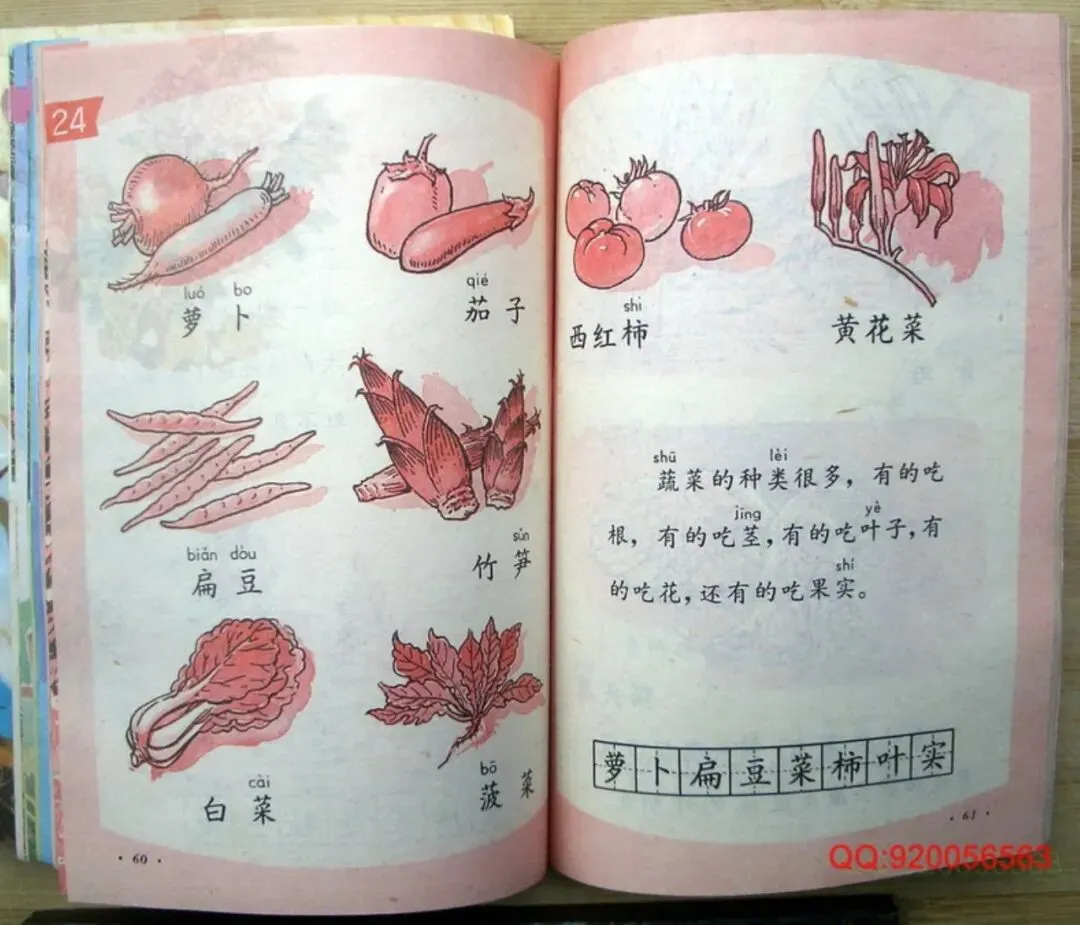 24
luó bo
萝卜
qié
茄子
biǎn dòu
扁豆
sǔn
竹笋
cài
白菜
bō
菠菜
· 60 ·
shì
西红柿
黄花菜
shū lèi
蔬菜的种类很多，有的吃
jīng yè
根，有的吃茎，有的吃叶子，有
shí
的吃花，还有的吃果实。
萝卜扁豆菜柿叶实
· 61 ·
QQ:920056563